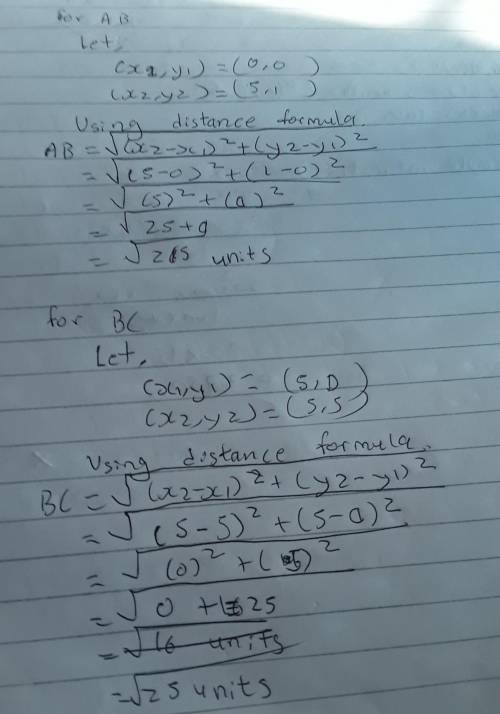 for AB
Let,
(x1,y1) = (0,0)
(x2,y2) = (5,1)
Using distance formula.
AB = √(x2-x1)²+(y2-y1)²
= √(5-0)²+(1-0)²
= √(5)²+(0)²
= √25+0
= √25 units
for BC
Let,
(x1,y1) = (5,0)
(x2,y2) = (5,5)
Using distance formula.
BC = √(x2-x1)²+(y2-y1)²
= √(5-5)²+(5-0)²
= √(0)²+(5)²
= √0+25
= √16 units
= √25 units